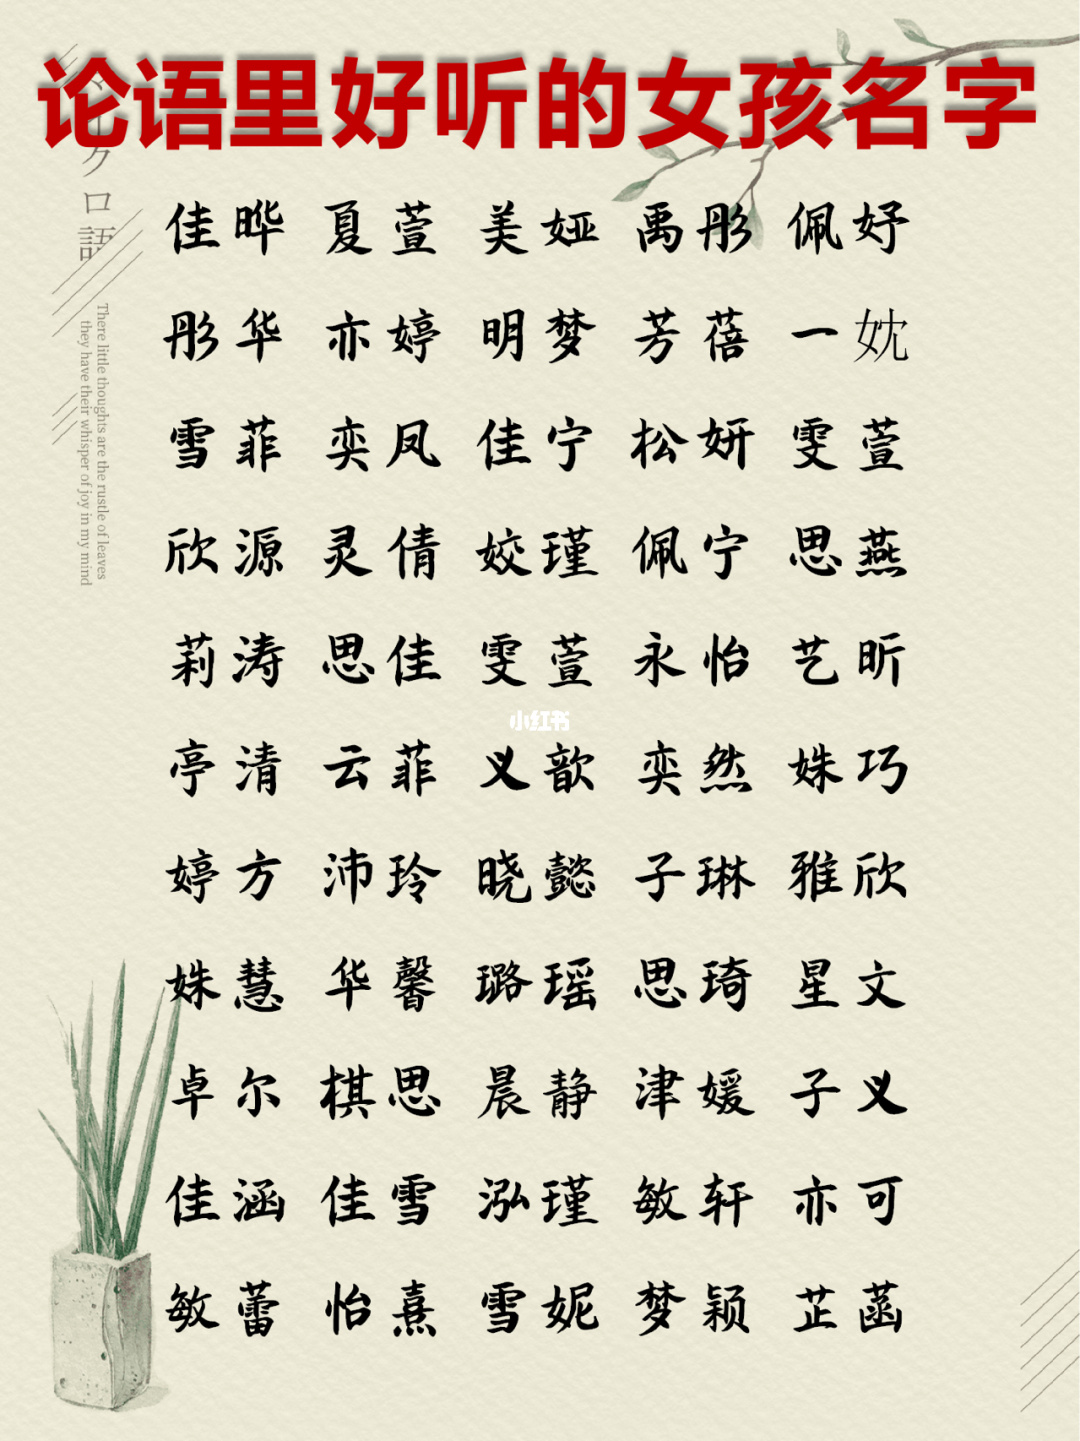 论语里好听的女孩名字
クロ語
There little thoughts are the rustle of leaves
they have their whisper of joy in my mind
佳晔 夏萱 美娅 禹彤 佩妤
彤华 亦婷 明梦 芳蓓 一妉
雪菲 奕凤 佳宁 松妍 雯萱
欣源 灵倩 姣瑾 佩宁 思燕
莉涛 思佳 雯萱 永怡 艺昕
小红书
亭清 云菲 义歆 奕然 姝巧
婷方 沛玲 晓懿 子琳 雅欣
姝慧 华馨 璐瑶 思琦 星文
卓尔 棋思 晨静 津媛 子义
佳涵 佳雪 泓瑾 敏轩 亦可
敏蕾 怡熹 雪妮 梦颖 芷菡